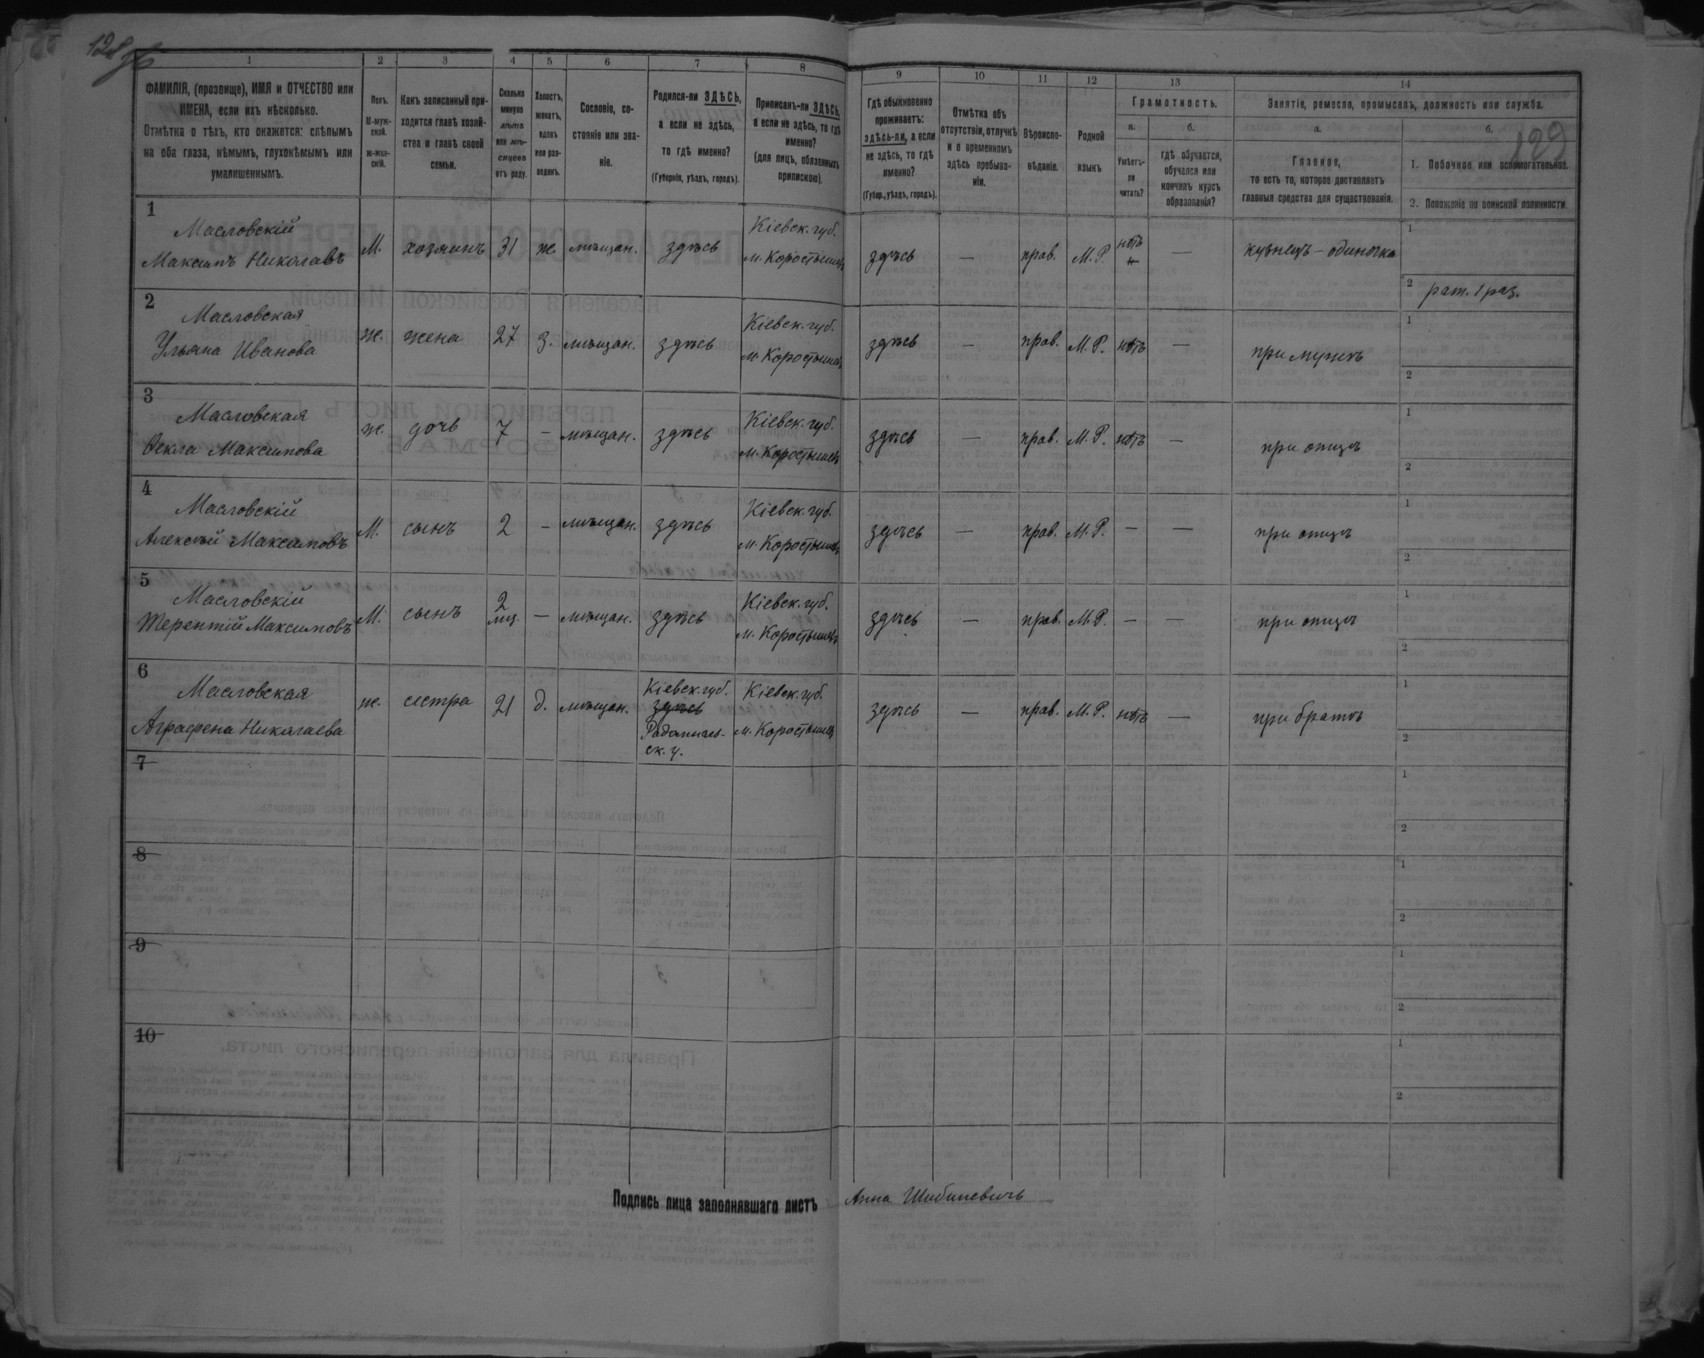 128 об
129
1 2 3 4 5 6 7 8 9 10 11 12 13 14
ФАМИЛІЯ, (прозвище), ИМЯ и ОТЧЕСТВО или
ИМЕНА, если ихъ нѣсколько.
Отмѣтка о тѣхъ, кто окажется: слѣпымъ
на оба глаза, нѣмымъ, глухонѣмымъ или
умалишеннымъ.
Полъ.
М-муж-
ской.
ж-жен-
скій.
Какъ записанный при-
ходится главѣ хозяй-
ства и главѣ своей
семьи.
Сколько
минуло
лѣтъ
или мѣ-
сяцевъ
отъ роду.
Холостъ,
женатъ,
вдовъ
или раз-
веденъ.
Сословіе, со-
стояніе или зва-
ніе.
Родился-ли ЗДѢСЬ,
а если не здѣсь,
то гдѣ именно?
(Губернія, уѣздъ, городъ).
Приписанъ-ли ЗДѢСЬ,
а если не здѣсь, то гдѣ
именно?
(для лицъ, обязанныхъ
припискою).
Гдѣ обыкновенно
проживаетъ:
здѣсь-ли, а если
не здѣсь, то гдѣ
именно?
(Губер., уѣздъ, городъ).
Отмѣтка объ
отсутствіи, отлучкѣ
и о временномъ
здѣсь пребыва-
ніи.
Вѣроиспо-
вѣданіе.
Родной
языкъ
Грамотность.
а.
Умѣетъ-
ли
читать?
б.
гдѣ обучается,
обучался или
кончилъ курсъ
образованія?
Занятіе, ремесло, промыселъ, должность или служба.
а.
Главное,
то есть то, которое доставляетъ
главныя средства для существованія.
б.
1. Побочное или вспомогательное.
2. Положеніе по воинской повинности
1
Масловскій
Максимъ Николаевъ
М. хозяинъ 31 ж. мѣщан. здѣсь
Кіевск. губ.
м. Коростышевъ
здѣсь — прав. М.Р. нѣтъ — кузнецъ – одиночка
1
2 рат. 1 раз.
2
Масловская
Ульяна Иванова
ж. жена 27 з. мѣщан. здѣсь
Кіевск. губ.
м. Коростышевъ
здѣсь — прав. М.Р. нѣтъ — при мужѣ
1
2
3
Масловская
Ѳекла Максимова
ж. дочь 7 — мѣщан. здѣсь
Кіевск. губ.
м. Коростышевъ
здѣсь — прав. М.Р. нѣтъ — при отцѣ
1
2
4
Масловскій
Алексѣй Максимовъ
М. сынъ 2 — мѣщан. здѣсь
Кіевск. губ.
м. Коростышевъ
здѣсь — прав. М.Р. — — при отцѣ
1
2
5
Масловскій
Терентій Максимовъ
М. сынъ 2 мц. — мѣщан. здѣсь
Кіевск. губ.
м. Коростышевъ
здѣсь — прав. М.Р. — — при отцѣ
1
2
6
Масловская
Аграфена Николаева
ж. сестра 21 д. мѣщан.
Кіевск. губ.
здѣсь
Радомысль-
ск. у.
Кіевск. губ.
м. Коростышев
здѣсь — прав. М.Р. нѣтъ — при братѣ
1
2
7
1
2
8
1
2
9
1
2
10
1
2
Подпись лица заполнявшаго листъ